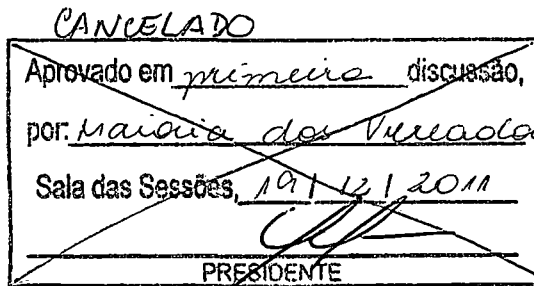 CANCELADO
Aprovado em primeira discussão,
por: Maioria dos Vereado
Sala das Sessões, 19/12/2011
PRESIDENTE